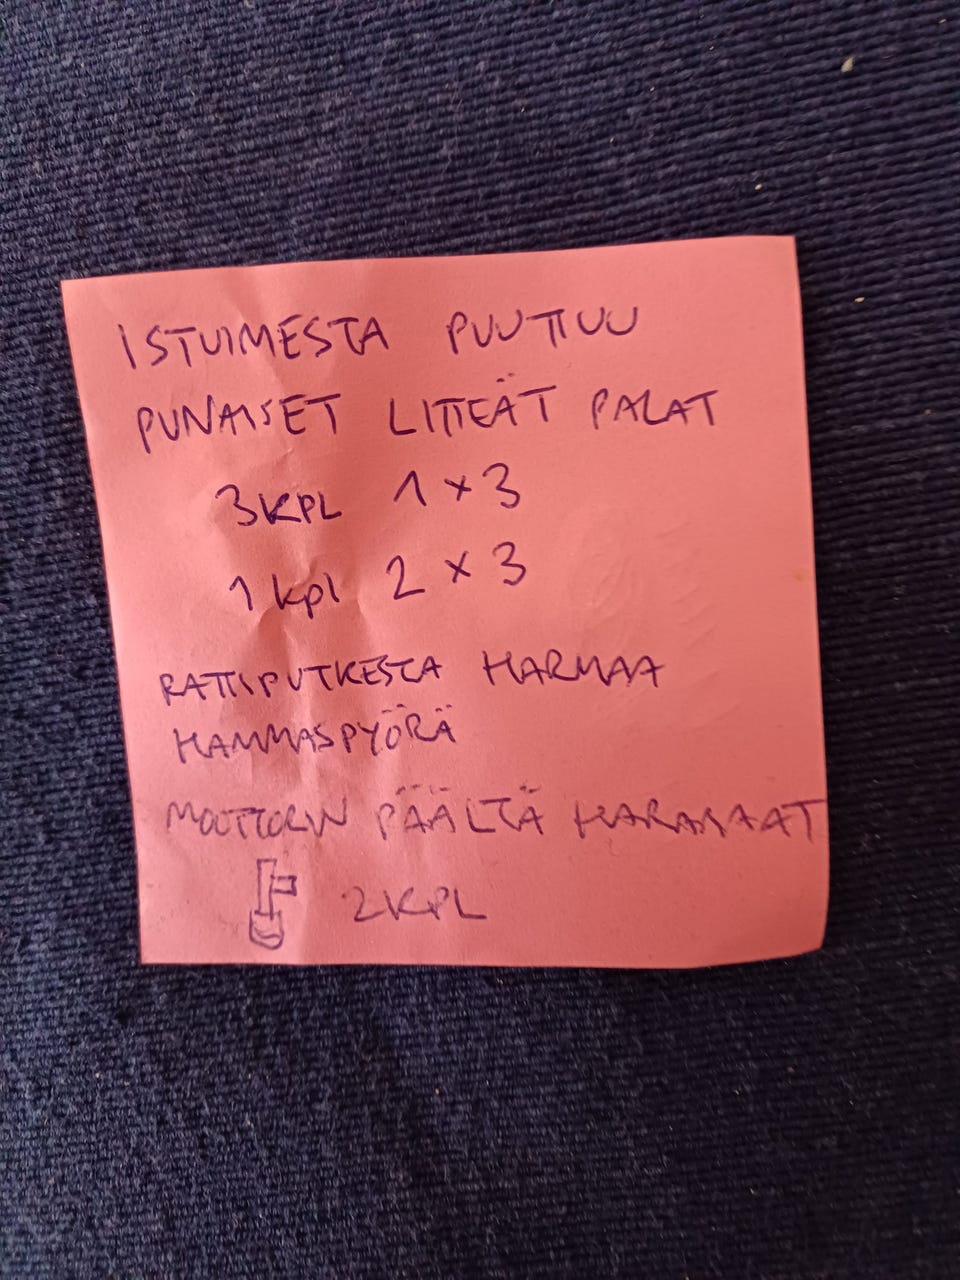 ISTUIMESTA PUUTTUU
PUNAISET LITTEÄT PALAT
3KPL 1x3
1kpl 2x3
RATTIPUTKESTA HARMAA
HAMMASPYÖRÄ
MOOTTORIN PÄÄLTÄ HARMAAT
2KPL